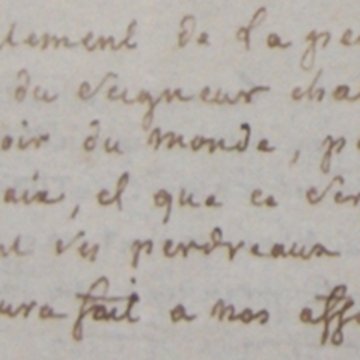 lement de la pe
du Seigneur cha
oir du monde, p
aix, et que ce ser
ses perdreaux
ura fait a nos affa